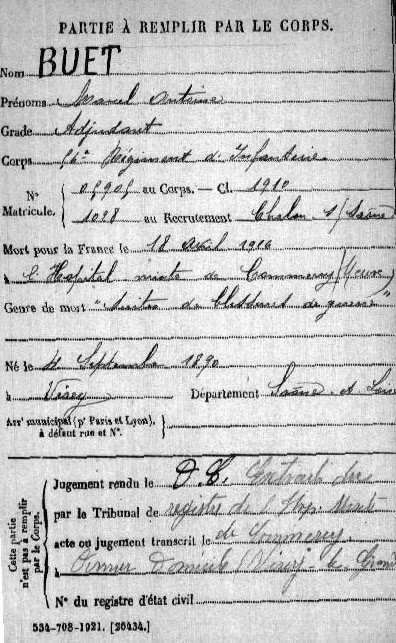 PARTIE À REMPLIR PAR LE CORPS.
Nom BUET
Prénoms Marcel Antoine
Grade Adjudant
Corps 56e Régiment d'Infanterie
N° Matricule. { 05905 au Corps. — Cl. 1910
1028 au Recrutement Chalon s/Saône
Mort pour la France le 18 avril 1916
à l'Hopital mixte de Commercy (Meuse)
Genre de mort "Suites de blessures de guerre"
Né le 4 Septembre 1890
à Virey Département Saône-et-Loire
Arrt municipal (pr Paris et Lyon), à défaut rue et N°. }
Cette partie n'est pas à remplir par le Corps.
Jugement rendu le D.C. Extrait des
par le Tribunal de registre de l'Hop. Mixte
acte ou jugement transcrit le de Commercy
à Dernier Domicile (Virey-le-Grand
N° du registre d'état civil
534-708-1921. [26434.]